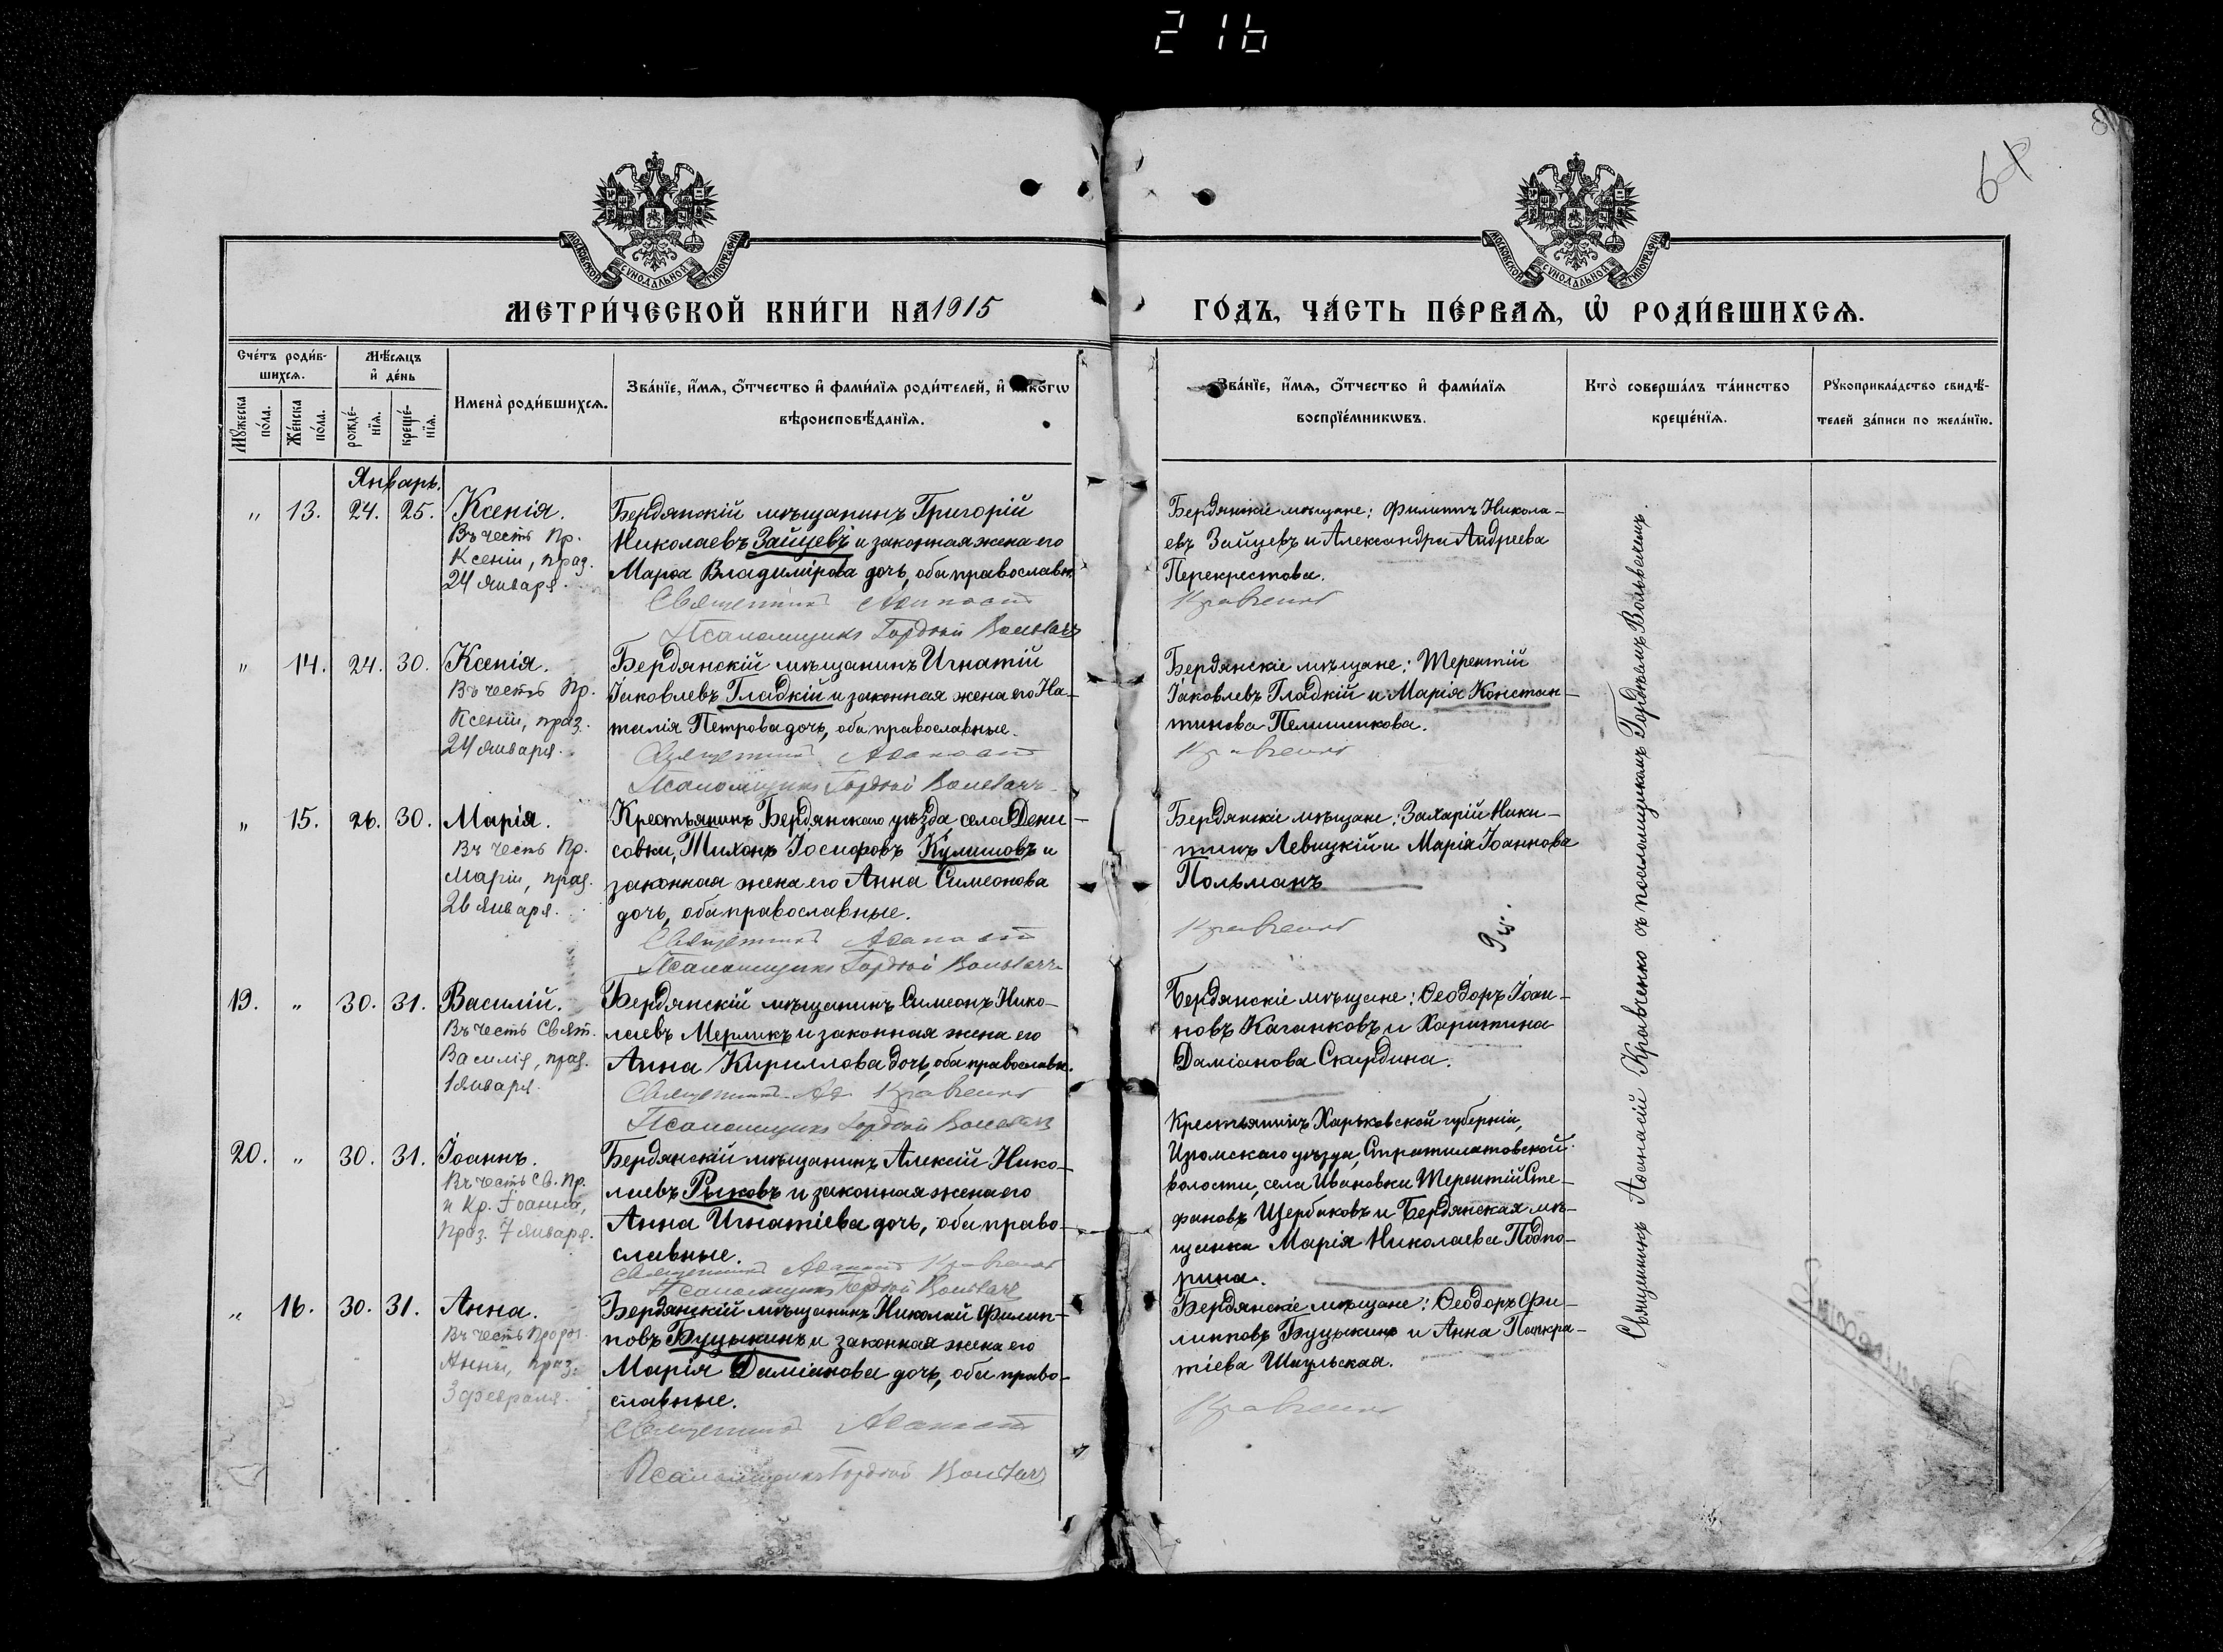 216
68
МОСКОВСКОЙ СѴНОДАЛЬНОЙ ТИПОГРАФІИ
МОСКОВСКОЙ СѴНОДАЛЬНОЙ ТИПОГРАФІИ
МЕТРИ́ЧЕСКОЙ КНИ́ГИ НА 1915
ГО́ДЪ, ЧА́СТЬ ПЕ́РВАѦ, Ѡ҆ РОДИ́ВШИХСѦ.
Сче́тъ роди́в-
шихсѧ.
Мꙋ́жеска
по́ла.
Же́нска
по́ла.
Мѣ́сѧцъ
и҆ де́нь
рожде́-
нїѧ.
креще́-
нїѧ.
Имена̀ роди́вшихсѧ.
Зва́нїе, и҆́мѧ, ѻ҆́тчество и҆ фами́лїѧ роди́телей, и҆ како́гѡ
вѣроисповѣ́данїѧ.
Зва́нїе, и҆́мѧ, ѻ҆́тчество и҆ фами́лїѧ
воспрїе́мникѡвъ.
Кто̀ соверша́лъ та́инство
креще́нїѧ.
Рꙋкоприкла́дство свидѣ́-
телей за́писи по жела́нїю.
Январь.
„ 13. 24. 25. Ксенія.
Въ честь Пр.
Ксеніи, праз.
24 Января.
Бердянскій мѣщанинъ Григорій
Николаевъ Зайцевъ и законная жена его
Марѳа Владимірова дочь, оба православн.
Священникъ Аѳанасій
Псаломщикъ Гордѣй Волвачъ
Бердянскіе мѣщане: Филиппъ Никола-
евъ Зайцевъ и Александра Андреева
Перекрестова.
Кравченко
„ 14. 24. 30. Ксенія.
Въ честь Пр.
Ксеніи, праз.
24 Января.
Бердянскій мѣщанинъ Игнатій
Іаковлевъ Гладкій и законная жена его На-
талія Петрова дочь, оба православные.
Священникъ Аѳанасій
Псаломщикъ Гордѣй Волвачъ
Бердянскіе мѣщане: Терентій
Іаковлевъ Гладкій и Марія Констан-
тинова Пелишенкова.
Кравченко
„ 15. 26. 30. Марія.
Въ честь Пр.
Маріи, праз.
26 Января.
Крестьянинъ Бердянскаго уѣзда села Дени-
совки, Тихонъ Іосифовъ Кулишовъ и
законная жена его Анна Симеонова
дочь, оба православные.
Священникъ Аѳанасій
Псаломщикъ Гордѣй Волвачъ
Бердянскіе мѣщане: Захарій Ники-
тинъ Левицкій и Марія Іоаннова
Польманъ
Кравченко
19. „ 30. 31. Василій.
Въ честь Свят.
Василія, праз.
1 Января.
Бердянскій мѣщанинъ Симеонъ Нико-
лаевъ Мерликъ и законная жена его
Анна Кириллова дочь, оба православн.
Священникъ Аѳ. Кравченко
Псаломщикъ Гордѣй Волвачъ
Бердянскіе мѣщане: Ѳеодоръ Іоан-
новъ Каганковъ и Харитина
Даміанова Скирдина.
20. „ 30. 31. Іоаннъ.
Въ честь Св. Пр.
и Кр. Іоанна,
праз. 7 Января.
Бердянскій мѣщанинъ Алексій Нико-
лаевъ Рыковъ и законная жена его
Анна Игнатіева дочь, оба право-
славные.
Священникъ Аѳанасій Кравченко
Псаломщикъ Гордѣй Волвачъ
Крестьянинъ Харьковской губерніи,
Изюмскаго уѣзда, Стратилатовской
волости, села Ивановки Терентій Сте-
фановъ Щербаковъ и Бердянская мѣ-
щанка Марія Николаева Подпо-
рина.
„ 16. 30. 31. Анна.
Въ честь Пророч.
Анны, праз.
3 февраля.
Бердянскій мѣщанинъ Николай Филип-
повъ Буцыкинъ и законная жена его
Марія Даміанова дочь, оба право-
славные.
Священникъ Аѳанасій
Псаломщикъ Гордѣй Волвачъ
Бердянскіе мѣщане: Ѳеодоръ Фи-
липповъ Буцыкинъ и Анна Панкра-
тіева Шаульская.
Кравченко
Священникъ Аѳанасій Кравченко съ псаломщикомъ Гордѣемъ Волвачемъ.